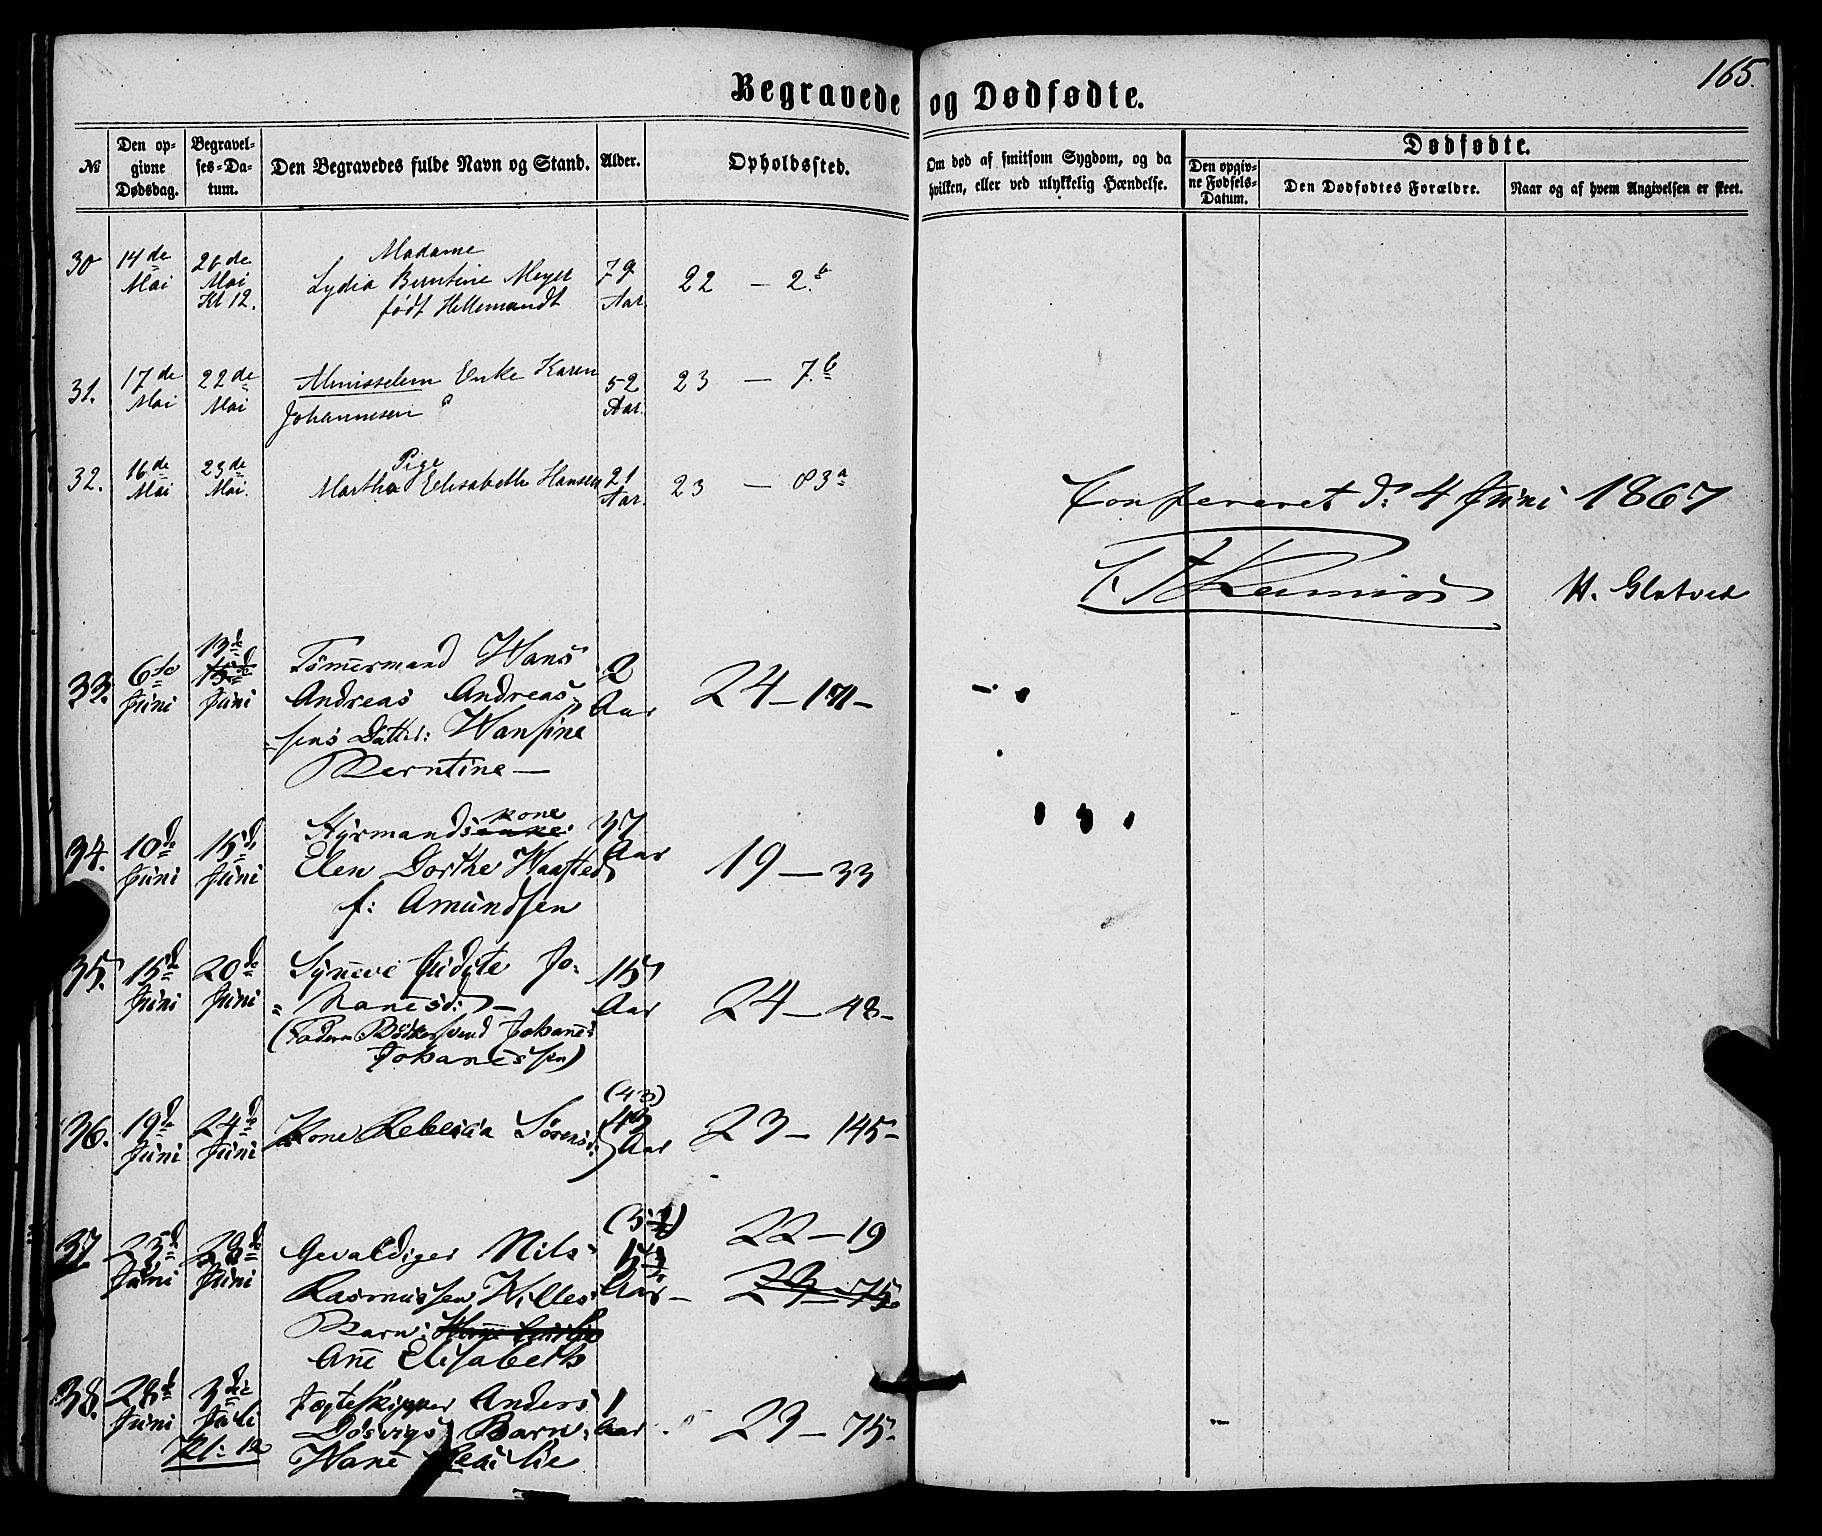 165.
Begravede og Dødfødte.
№
Den op-
givne
Dødsdag.
Begravel-
ses-Da-
tum.
Den Begravedes fulde Navn og Stand.
Alder.
Opholdssted.
Om død af smitsom Sygdom, og da
hvilken, eller ved ulykkelig Hændelse.
Dødfødte.
Den opgiv-
ne Fødsels-
Datum.
Den Dødfødtes Forældre.
Naar og af hvem Angivelsen er skeet.
30 14de Mai
20de Mai Kl 12.
Madame
Lydia Berntine Meyer
født Hellemandt
79 Aar
22 – 2.b
31. 17de Mai
22de Mai
Enke Karen
Johannesen
52 Aar.
23 – 7.b
32. 16de Mai
23de Mai.
Pige
Martha Elisabeth Hansen
21 Aar.
23 – 83a
Confereret d. 4 Juni 1867
33. 6te Juni
13de
15de
Juni
Tömermand Hans
Andreas Andreas-
sens Datter: Hansine
Berntine –
2 Aar
24 – 171 –
34. 10de Juni
15de Juni
kone
Styrmands enke:
Elen Dorthe Haasted
f: Amundsen
37 Aar
19 – 33
35. 15de Juni
20de Juni
Syneve Judite Jo-
hanesd: –
(Faderen Bödkersvend Johanes
Johanessen)
15 Aar
24 – 48 –
36. 19de Juni
24de Juni
Kone Rebecca Sörensd:
(43)
Aar
23 – 145 –
37 25de Juni
28de Juni
Gevaldiger Nils
Rasmussen Willes
Barn:
Ane Elisabeth
Aar –
22 – 19
38. 28de Juni
3die Juli
Kl: 12
Jægteskipper Anders
Dosvigs Barn:
Hane
1 Aar
23 – 75 –